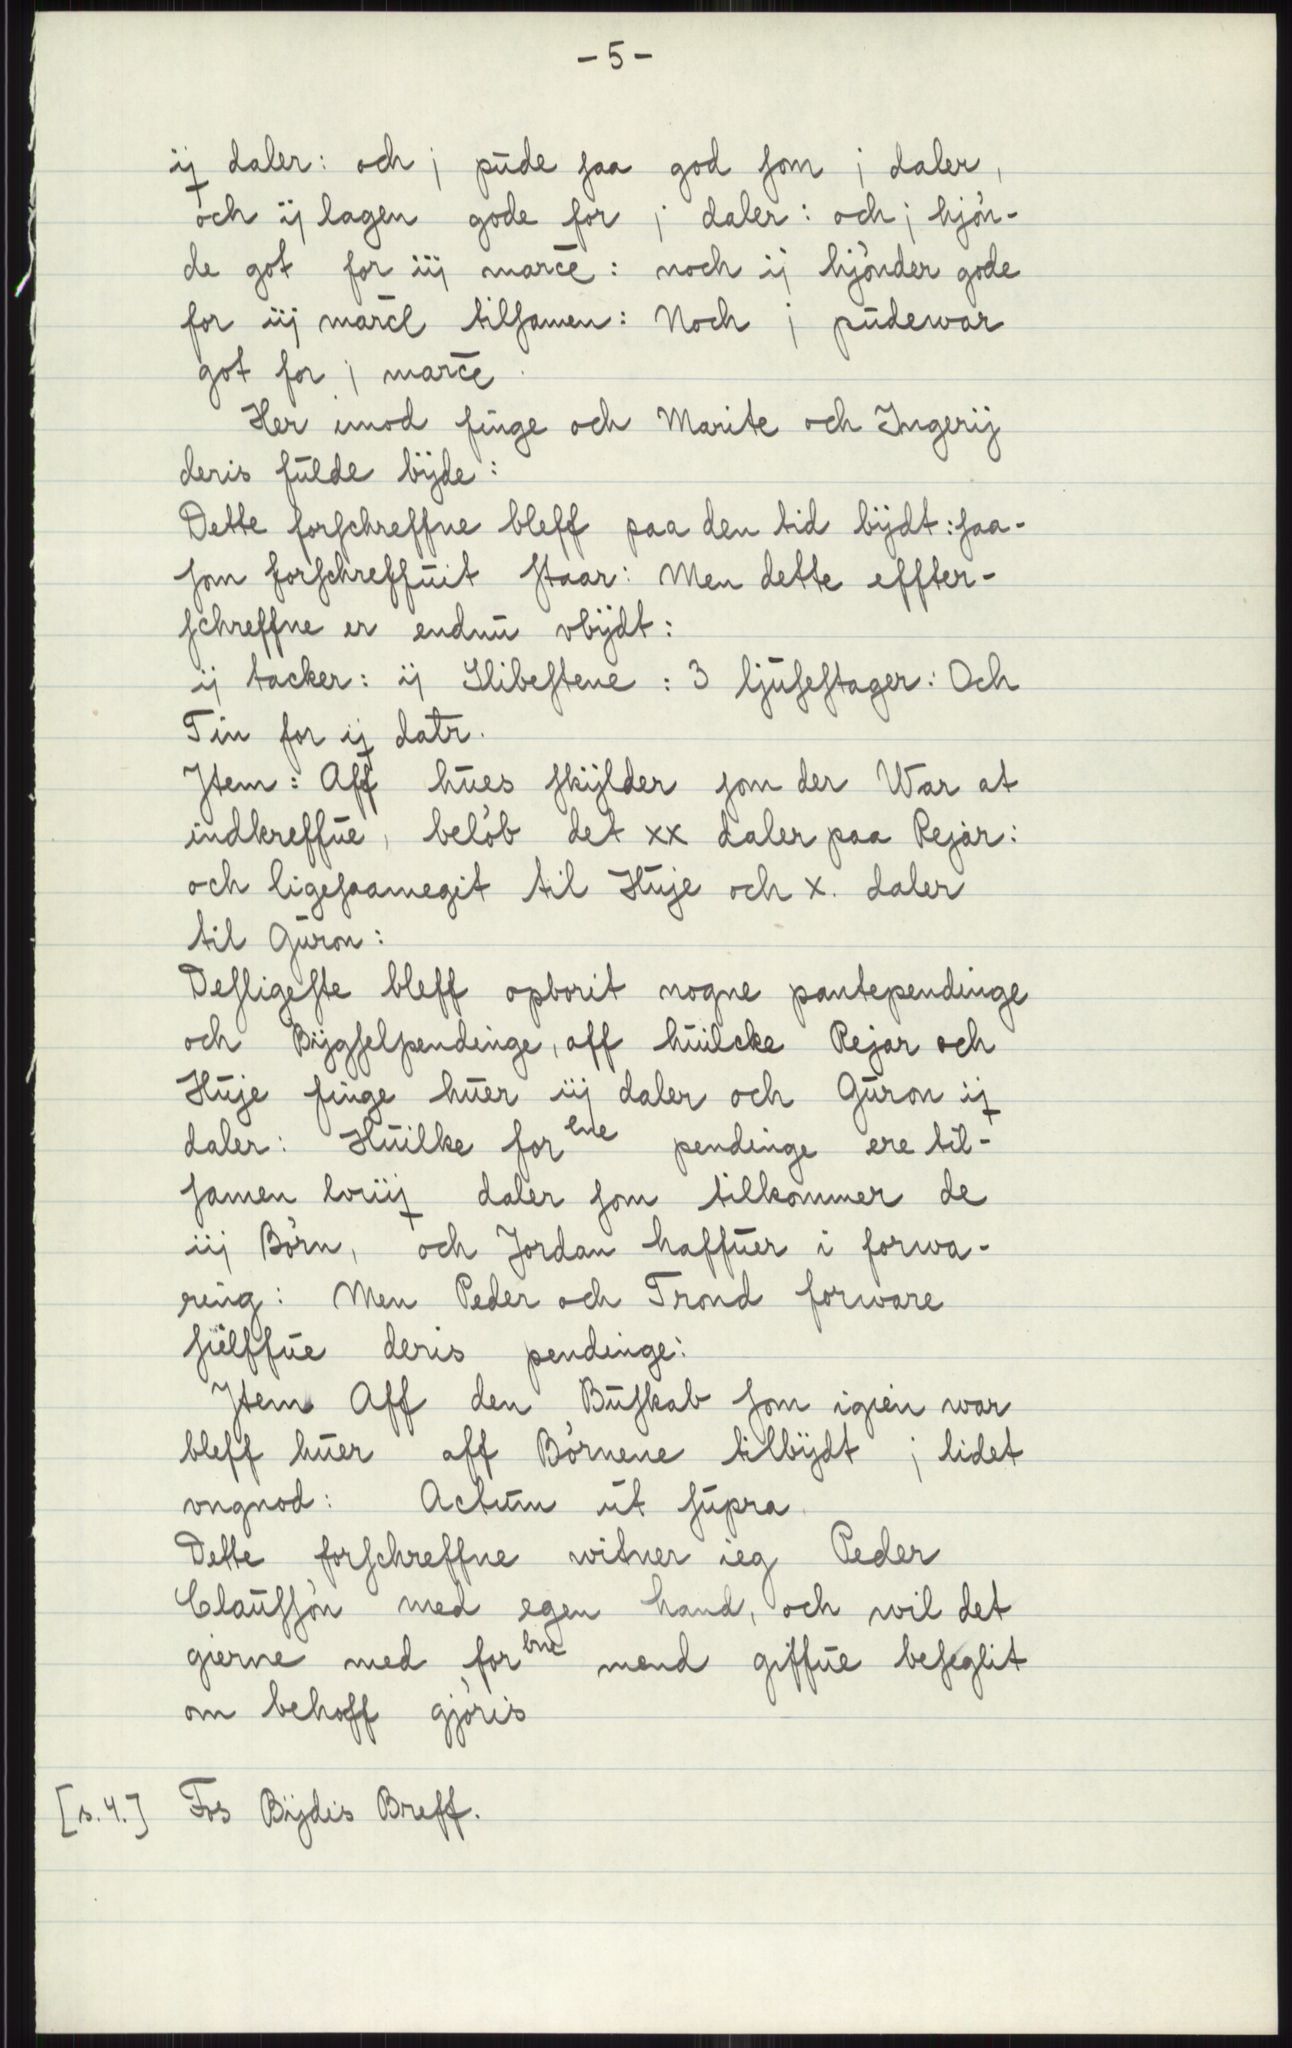 - 5 -
ij daler: och j pude saa god som j daler,
och ij lagen gode for j daler: och j hjøn-
de got for iij marce: noch ij hjønder gode
for iij marce tilsamen: Noch j pudewar
got for j marce.
Her imod finge och Marite och Ingerij
deris fulde bÿde:
Dette forschreffne bleff paa den tid bÿdt: saa-
som forschreffuit staar: Men dette effter-
schreffne er endnu vbÿdt:
ij tacker: ij Slibestene: 3 ljusestager: Och
Tin for ij datr.
Jtem: Aff hues skÿlder som der War at
indkreffue, beløb det xx daler paa Rejar:
och ligesaamegit til Huje och x. daler
til Guron:
Desligeste bleff opborit nogne pantependinge
och Bÿgselpendinge, aff huilcke Rejar och
Huje finge huer iij daler och Guron ij
daler: Huilke for ene pendinge ere til-
samen lviij daler som tilkommer de
iij Børn, och Jordan haffuer i forwa-
ring: Men Peder och Trond forware
sielffue deris pendinge:
Jtem Aff den Buskab som igien war
bleff huer aff Børnene tilbÿdt j lidet
vngnod: Actum ut supra.
Dette forschreffne witner ieg Peder
Claussøn med egen hand, och wil det
gierne med for bne mend giffue beseglit
om behoff gjøris
[s. 4.] Fos Bÿdis Breff.